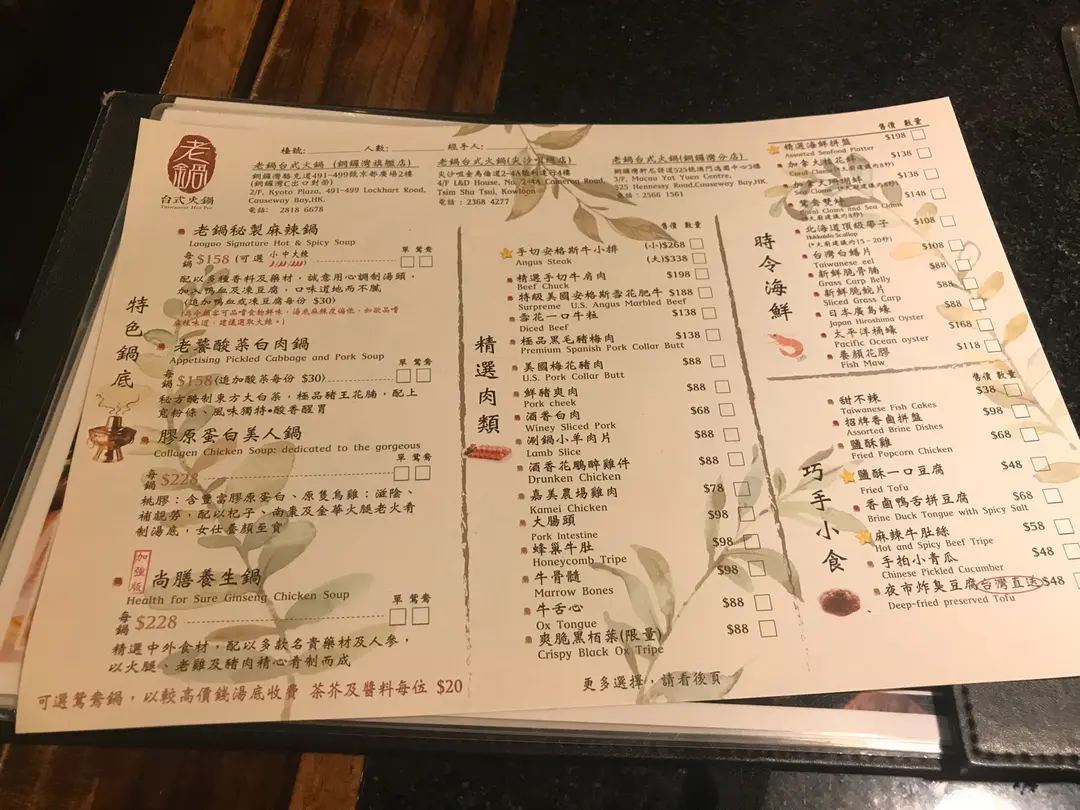 老鍋
台式火鍋
Taiwanese Hot Pot
檯號: 人數: 經手人:
老鍋台式火鍋 (銅鑼灣旗艦店)
銅鑼灣駱克道491-499號京都廣場2樓
(銅鑼灣C出口對面)
2/F, Kyoto Plaza, 491-499 Lockhart Road,
Causeway Bay,HK.
電話: 2818 6678
老鍋台式火鍋(尖沙咀總店)
尖沙咀金馬倫道2-4A號利達行4樓
4/F L&D House, No. 2-4A Cameron Road,
Tsim Sha Tsui, Kowloon
電話:2368 4277
老鍋台式火鍋(銅鑼灣分店)
525 Hennessy Road,Causeway Bay,HK.
電話:2566 1561
特色鍋底
老鍋秘製麻辣鍋
Laoguo Signature Hot & Spicy Soup
單 鴛鴦
每鍋 $158 (可選 小 中 大辣
配以多種香料及藥材,誠意用心調制湯頭,
加入鴨血及凍豆腐,口味道地而不膩
(追加鴨血或凍豆腐每份 $30)
老饕酸菜白肉鍋
Appetising Pickled Cabbage and Pork Soup
單 鴛鴦
每鍋 $158(追加酸菜每份 $30)
秘方醃制東方大白菜,極品豬王花腩,配上
寬粉條、風味獨特•酸香醒胃
膠原蛋白美人鍋
Collagen Chicken Soup: dedicated to the gorgeous
單 鴛鴦
每鍋 $228
桃膠:含豐富膠原蛋白、原隻烏雞:滋陰、
補勞,配以杞子、南棗及金華火腿老火肴
制湯底,女仕養顏至寶
加強版
尚膳養生鍋
Health for Sure Ginseng Chicken Soup
單 鴛鴦
每鍋 $228
精選中外食材,配以多款名貴藥材及人參,
以火腿、老雞及豬肉精心肴制而成
可選鴛鴦鍋,以較高價錢湯底收費 茶芥及醬料每位 $20
精選肉類
售價 數量
手切安格斯牛小排 (小)$268
Angus Steak (大)$338
精選手切牛肩肉 $198
Beef Chuck
特級美國安格斯雪花肥牛 $188
Surpreme U.S. Angus Marbled Beef
雪花一口牛粒 $138
Diced Beef
極品黑毛豬梅肉 $138
Premium Spanish Pork Collar Butt
美國梅花豬肉 $88
U.S. Pork Collar Butt
鮮豬爽肉 $88
Pork cheek
酒香白肉 $68
Winey Sliced Pork
涮鍋小羊肉片 $88
Lamb Slice
酒香花鵰醉雞件 $88
Drunken Chicken
嘉美農場雞肉 $78
Kamei Chicken
大腸頭 $98
Pork Intestine
蜂巢牛肚 $98
Honeycomb Tripe
牛骨髓 $98
Marrow Bones
牛舌心 $88
Ox Tongue
爽脆黑栢葉(限量) $88
Crispy Black Ox Tripe
更多選擇,請看後頁
時令海鮮
售價 數量
精選海鮮拼盤 $198
Assorted Seafood Platter
加拿大桂花蚌 $138
加拿大珊瑚蚌 $138
鴛鴦雙蚌 $148
Coral Clams and Sea Clams
北海道頂級帶子 $108
Hokkaido Scallop
(*大廚建議灼15-20秒)
台灣白鱔片 $108
Taiwanese eel
新鮮脆骨腩 $88
Grass Carp Belly
新鮮脆鯇片 $88
Sliced Grass Carp
日本廣島蠔 $88
Japan Hiroshima Oyster
太平洋桶蠔 $168
Pacific Ocean oyster
養顏花膠 $118
Fish Maw
巧手小食
售價 數量
甜不辣 $38
Taiwanese Fish Cakes
招牌香鹵拼盤 $98
Assorted Brine Dishes
鹽酥雞 $68
Fried Popcorn Chicken
鹽酥一口豆腐 $48
Fried Tofu
香鹵鴨舌拼豆腐 $68
Brine Duck Tongue with Spicy Salt
麻辣牛肚絲 $58
Hot and Spicy Beef Tripe
手拍小青瓜 $48
Chinese Pickled Cucumber
夜市炸臭豆腐 台灣直送 $48
Deep-fried preserved Tofu